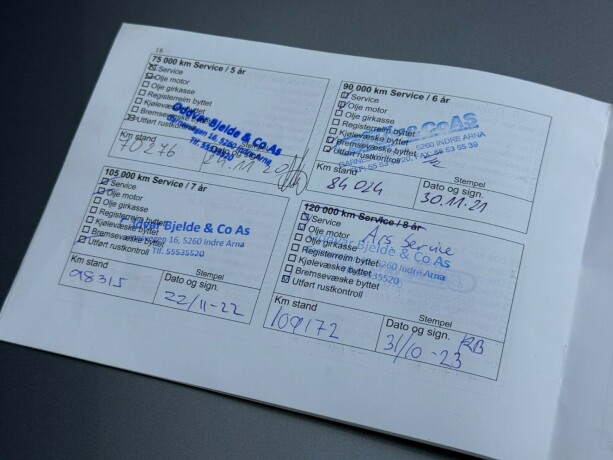 18
75 000 km Service / 5 år
Service
Olje motor
Olje girkasse
Registerreim byttet
Kjølevæske byttet
Bremsevæske byttet
Utført rustkontroll
Oddvar Bjelde & Co As
16, 5260 Indre Arna
Tlf. 55535520
Km stand
70276
90 000 km Service / 6 år
Service
Olje motor
Olje girkasse
Registerreim byttet
Kjølevæske byttet
Bremsevæske byttet
Utført rustkontroll
& CO AS
5260 INDRE ARNA
FAX 55 53 55 39
Stempel
Km stand
84 024
Dato og sign.
30.11.21
105 000 km Service / 7 år
Service
Olje motor
Olje girkasse
Registerreim byttet
Kjølevæske byttet
Bremsevæske byttet
Utført rustkontroll
Bjelde & Co As
16, 5260 Indre Arna
Tlf. 55535520
Stempel
Km stand
98315
Dato og sign.
22/11-22
120 000 km Service / 8 år
Års Service
Service
Olje motor
Olje girkasse
Registerreim byttet
Kjølevæske byttet
Bremsevæske byttet
Utført rustkontroll
Bjelde & Co As
5260 Indre Arna
Stempel
Km stand
109172
Dato og sign.
31/10-23 RB